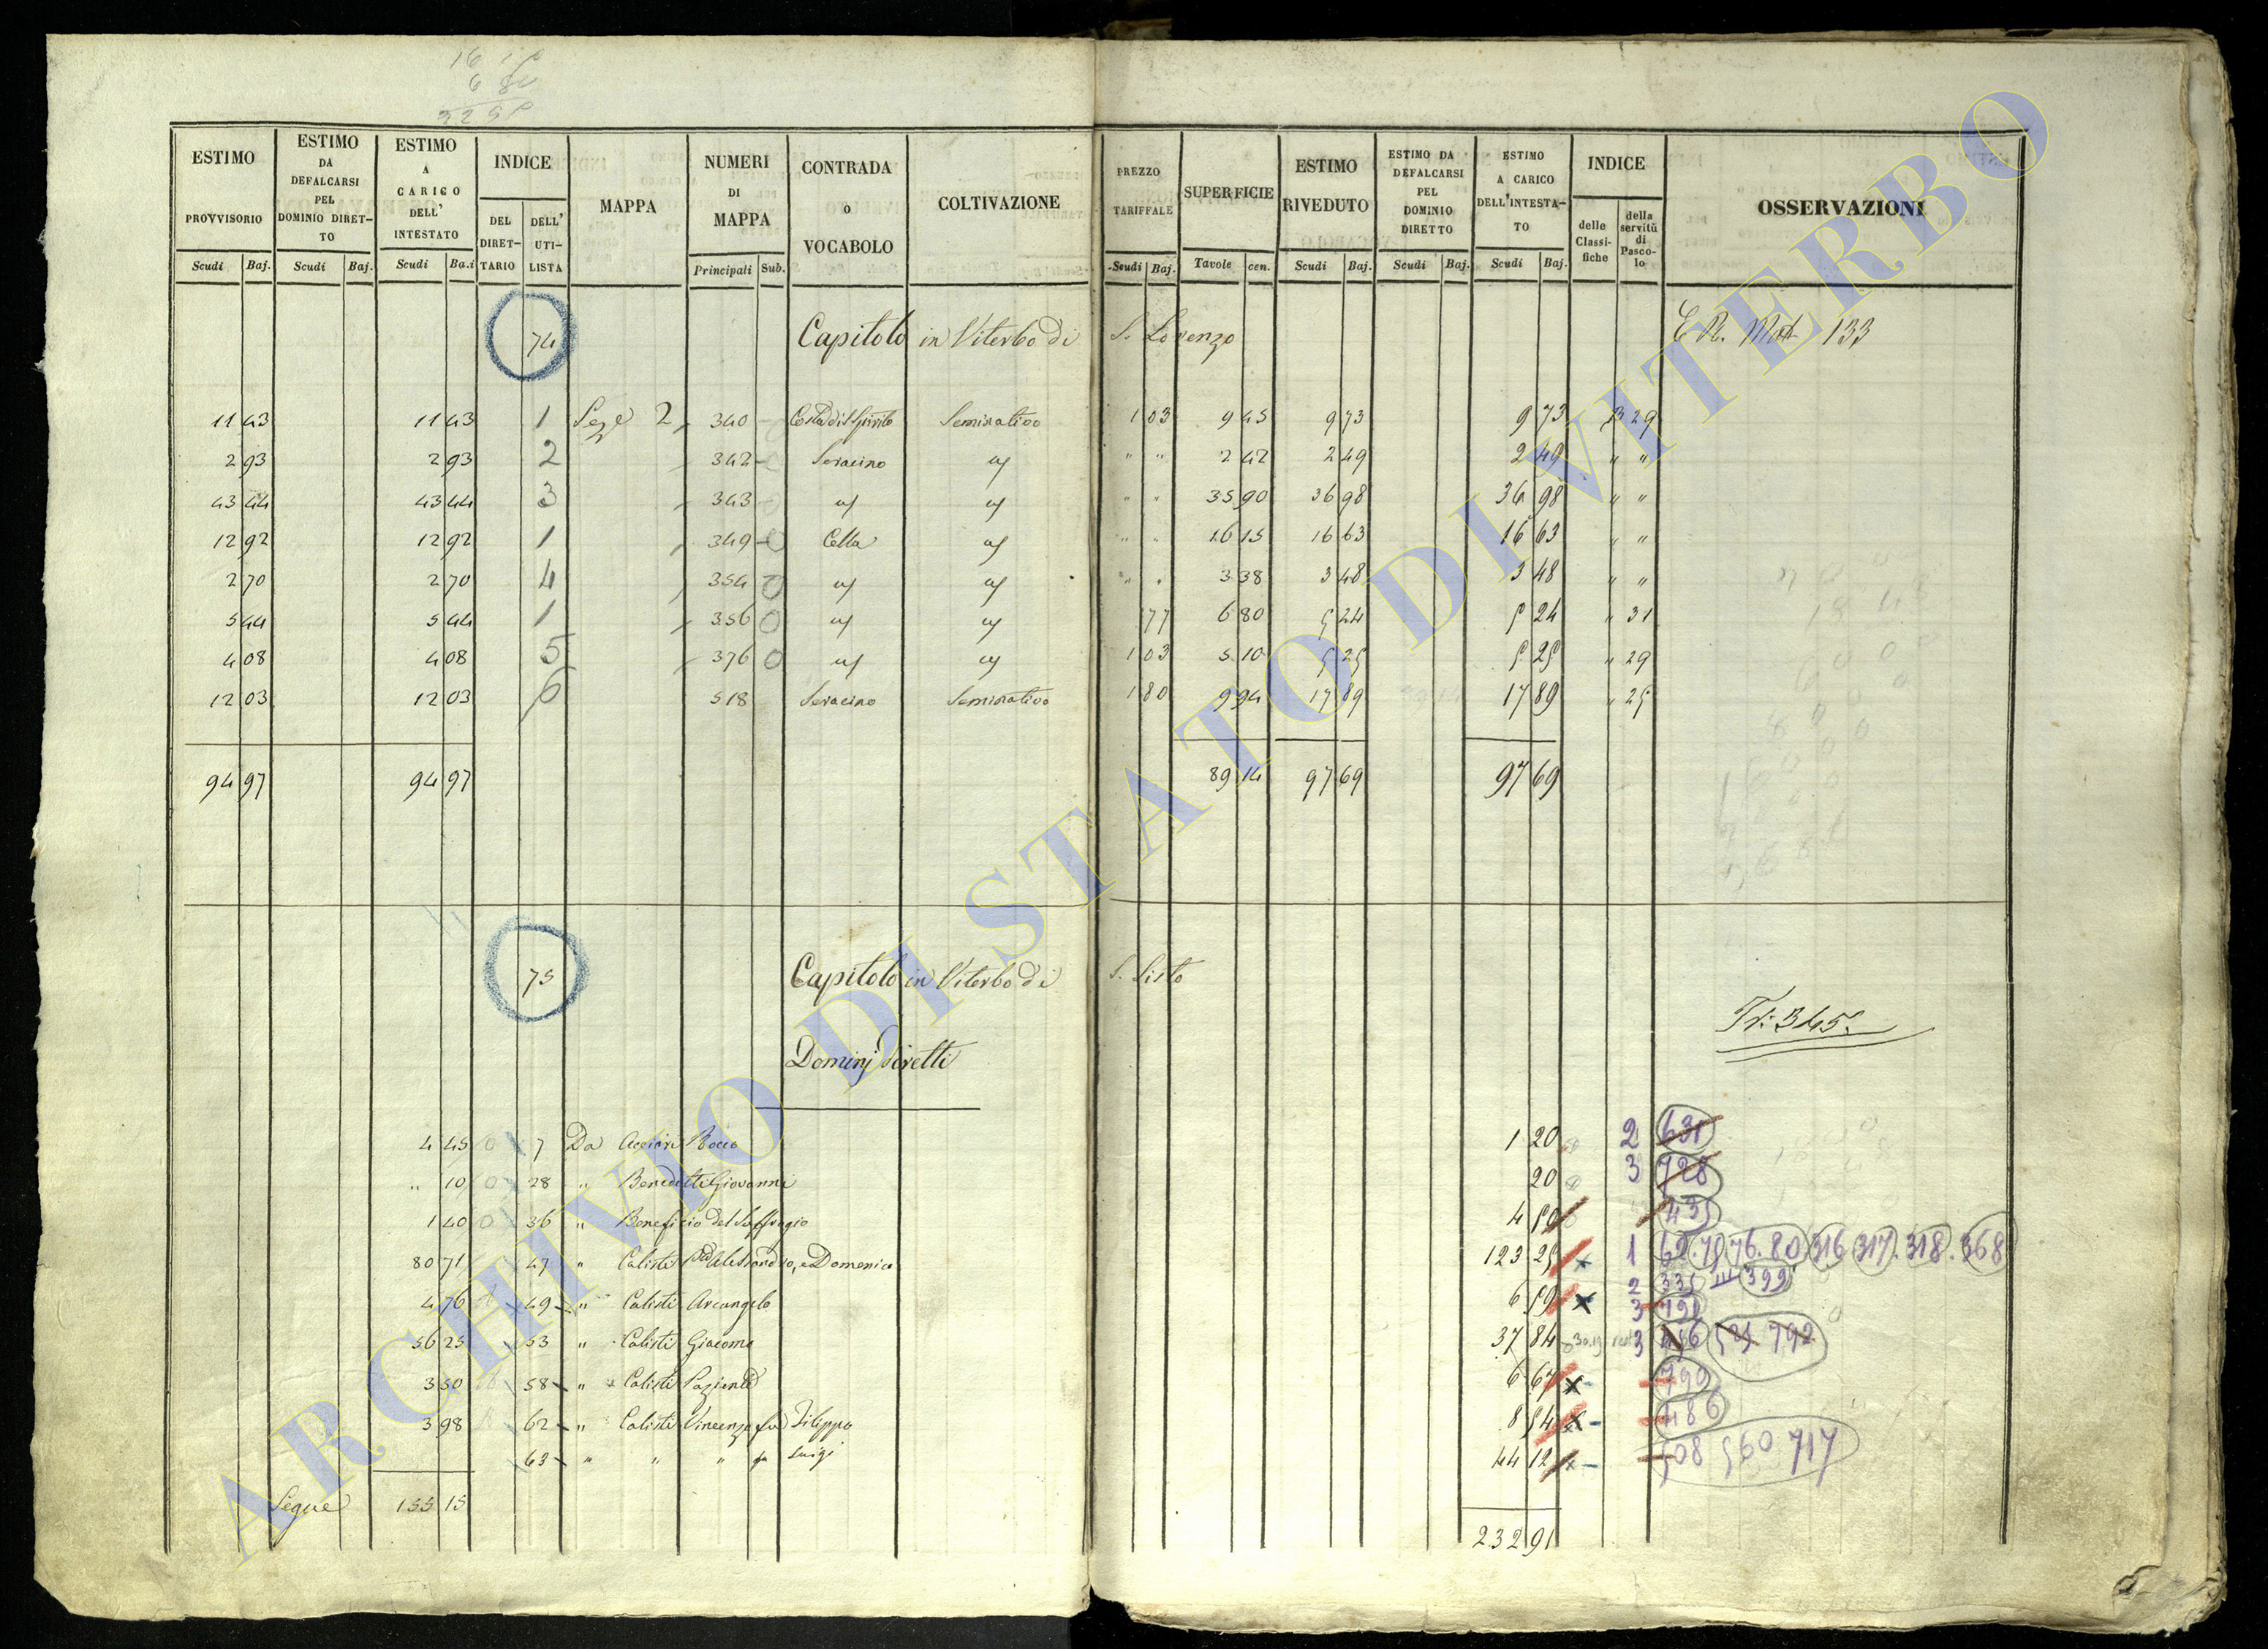 ESTIMO PROVVISORIO Scudi Baj. ESTIMO DA DEFALCARSI PEL DOMINIO DIRETTO Scudi Baj. ESTIMO A CARICO DELL' INTESTATO Scudi Ba.i INDICE DEL DIRETTARIO DELL' UTILISTA MAPPA NUMERI DI MAPPA Principali Sub. CONTRADA o VOCABOLO COLTIVAZIONE PREZZO TARIFFALE Scudi Baj. SUPERFICIE Tavole cen. ESTIMO RIVEDUTO Scudi Baj. ESTIMO DA DEFALCARSI PEL DOMINIO DIRETTO Scudi Baj. ESTIMO A CARICO DELL'INTESTATO Scudi Baj. INDICE delle Classifiche della servitù di Pascolo OSSERVAZIONI
74 Capitolo in Viterbo di S. Lorenzo 133
11 43 11 43 1 2 340 Seminativo 1 03 9 45 9 73 9 73 29
2 93 2 93 2 342 Seracino " " 2 42 2 49 2 49 " "
43 44 43 44 3 343 " " 35 90 36 98 36 98 " "
12 92 12 92 1 349 Cella " " 16 15 16 63 16 63 " "
2 70 2 70 4 354 0 " " 3 38 3 48 3 48 " "
5 44 5 44 1 356 0 77 6 80 5 24 5 24 " 31
4 08 4 08 5 376 0 1 03 5 10 5 25 5 25 " 29
12 03 12 03 6 518 Seracino Seminativo 1 80 9 94 17 89 17 89 " 25
94 97 94 97 89 14 97 69 97 69
75 Capitolo in Viterbo di S. Sisto
345
Dominj diretti
4 45 7 Da Rocco 1 20 2 631
" 10 28 " Benedetti Giovanni 20 3 728
1 40 36 " Beneficio del Suffragio 4 50 435
80 71 47 " Calisti Alessandro, e Domenico 123 25 1 62. 75 76. 80 316 317. 318. 368
2 335 III 399
4 76 49 " Calisti Arcangelo 6 59 3 791
56 25 53 " Calisti Giacomo 37 84 3 792
3 50 58 " Calisti Paziente 6 67 790
3 98 62 " Calisti Vincenzo fu Filippo 8 54 486
63 " " " fu Luigi 44 12 508 560 717
Segue 155 15 232 91
ARCHIVIO DI STATO DI VITERBO